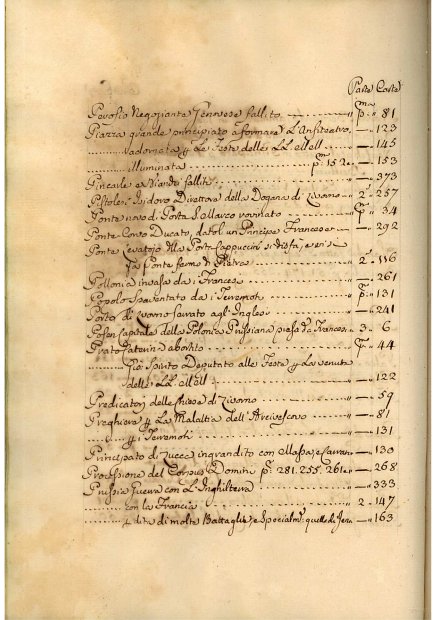 Parte Carte
Perosio Negoziante Genovese fallito " pma " 81
Piazza grande principiato a formare L'Anfiteatro — " 123
adornata p Le Feste delle LL MM — " 145
illuminata pa 152 e — " 153
e Biondi falliti — " 373
Pistolesi Isidoro Direttore della Dogana di Livorno 2a " 257
Ponte novo di Porta S. Marco rovinato " pa " 34
Ponte Corvo Ducato, dato l un Principe Francese — " 292
Ponte Levatojo alla Porta Cappuccini si disfa, e vi si
fa Ponte fermo di Pietra 2a " 116
Pollonia invasa da i Francesi — " 261
Popolo spaventato da i Terremoti pa " 131
Porto di Livorno serrato agl'Inglesi — " 241
Posen Capitale della Polonia Prussiana presa da Francesi 3a " 6
Prato Caterina abortito " pa " 44
Gio: Spirito Deputato alle Feste p La venuta
delle LL MM — " 122
Predicatori delle chiese di Livorno " — " 59
Preghiera p La Malattia dell'Arcivescovo " — " 81
p i Terremoti " — " 131
Principato di Lucca ingrandito con Massa, e Carrara — " 130
Processione del Corpus Domini pa 281. 255. 261. e — " 268
Prussia Guerra con L'Inghilterra " — " 333
con la Francia " 2a " 147
perdita di molte Battaglie, e Specialmte quella di Jena " — " 163